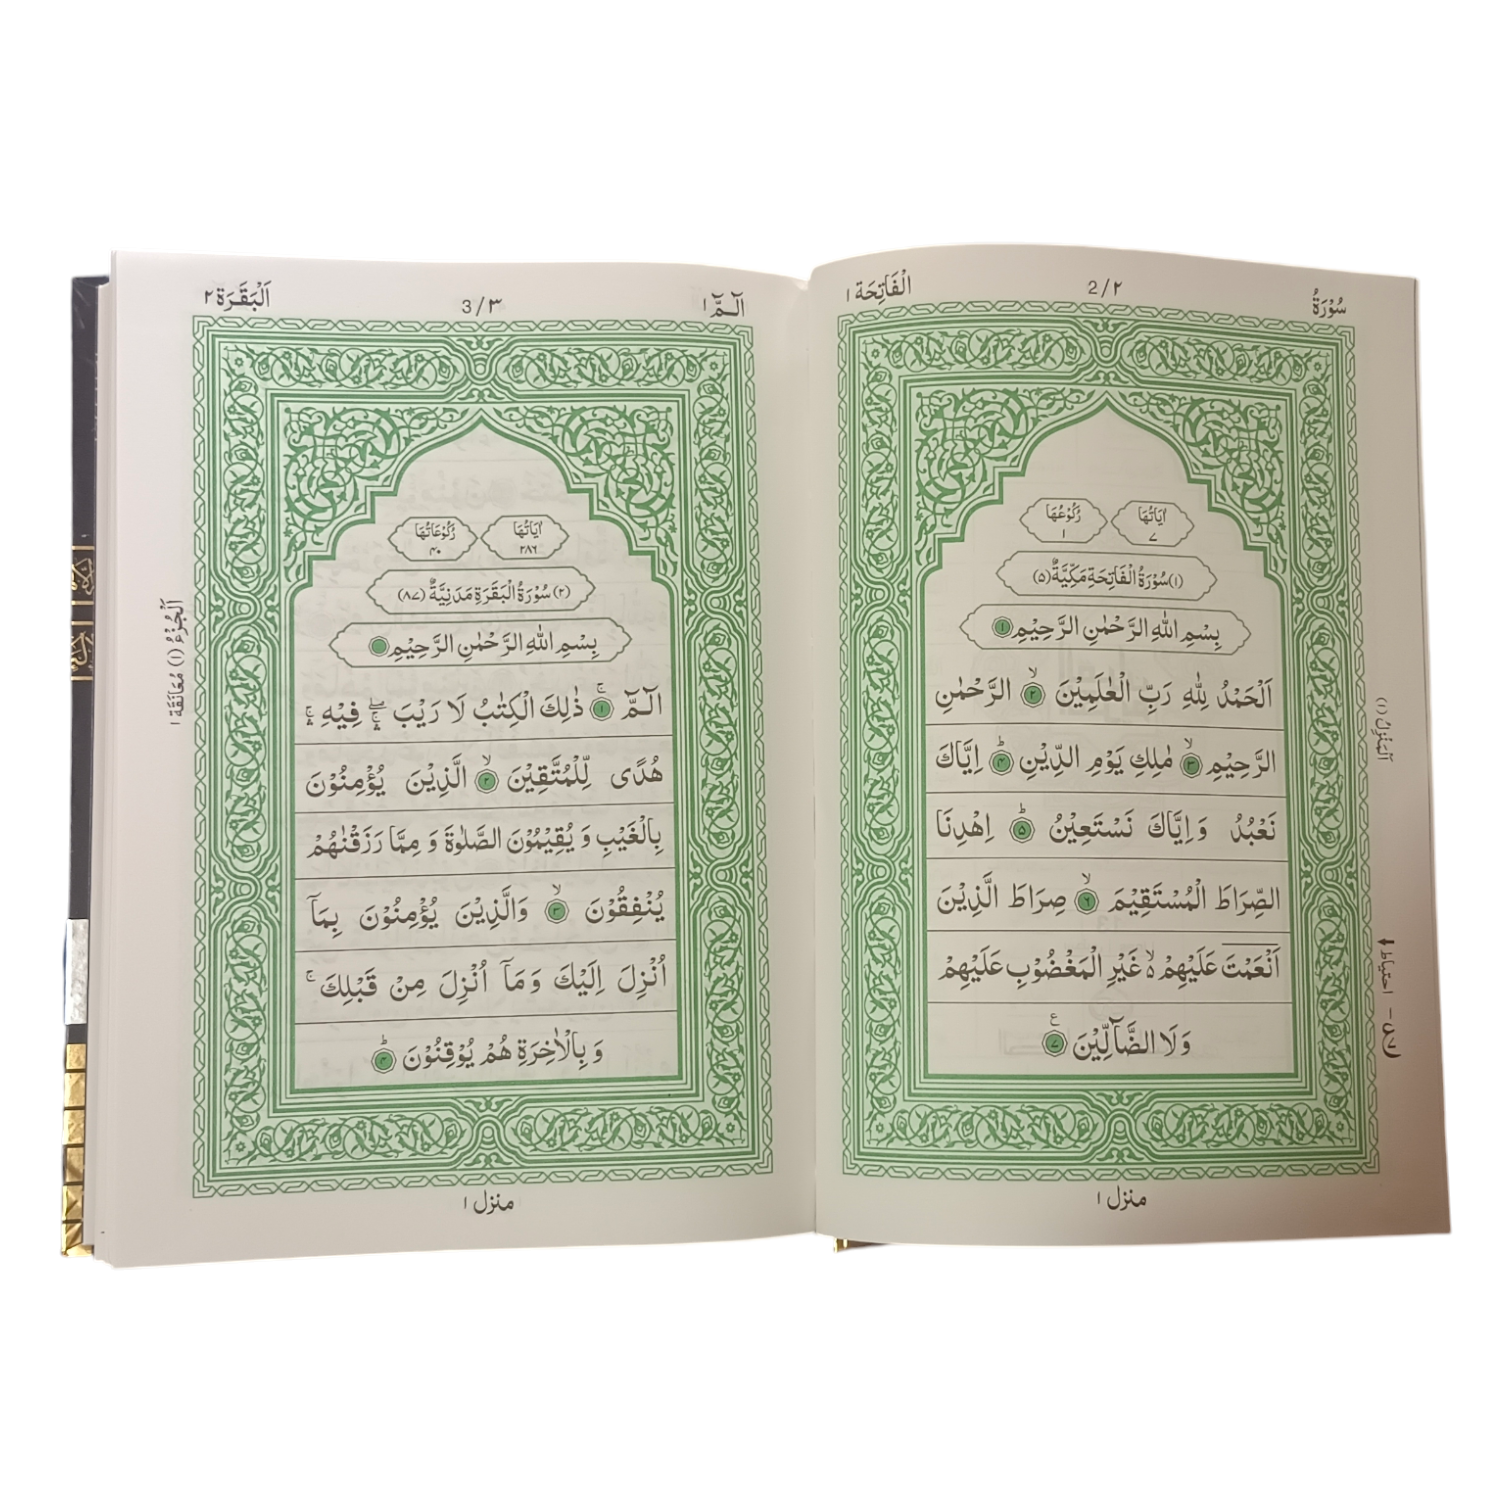 سُوْرَةُ
2/٢
الْفَاتِحَة ١
اٰيَاتُهَا ٧
رُكُوْعُهَا ١
(١) سُوْرَةُ الْفَاتِحَةِ مَكِّيَّةٌ (٥)
بِسْمِ اللّٰهِ الرَّحْمٰنِ الرَّحِيْمِ ١
اَلْحَمْدُ لِلّٰهِ رَبِّ الْعٰلَمِيْنَ ۙ ٢ الرَّحْمٰنِ
الرَّحِيْمِ ۙ ٣ مٰلِكِ يَوْمِ الدِّيْنِ ؕ ٤ اِيَّاكَ
نَعْبُدُ وَ اِيَّاكَ نَسْتَعِيْنُ ؕ ٥ اِهْدِنَا
الصِّرَاطَ الْمُسْتَقِيْمَ ۙ ٦ صِرَاطَ الَّذِيْنَ
اَنْعَمْتَ عَلَيْهِمْ ۙ۬ غَيْرِ الْمَغْضُوْبِ عَلَيْهِمْ
وَلَا الضَّآلِّيْنَ ٧ ع
منزل ١
اَلْمَنْزِلُ (١)
احتیاط
الٓـمّٓ ١
3/٣
اَلْبَقَرَة ٢
اٰيَاتُهَا ٢٨٦
رُكُوْعَاتُهَا ٤٠
(٢) سُوْرَةُ الْبَقَرَةِ مَدَنِيَّةٌ (٨٧)
بِسْمِ اللّٰهِ الرَّحْمٰنِ الرَّحِيْمِ
الٓـمّٓ ۚ ١ ذٰلِكَ الْكِتٰبُ لَا رَيْبَ ۛۖ فِيْهِ ۛۚ
هُدًى لِّلْمُتَّقِيْنَ ۙ ٢ الَّذِيْنَ يُؤْمِنُوْنَ
بِالْغَيْبِ وَ يُقِيْمُوْنَ الصَّلٰوةَ وَ مِمَّا رَزَقْنٰهُمْ
يُنْفِقُوْنَ ۙ ٣ وَالَّذِيْنَ يُؤْمِنُوْنَ بِمَآ
اُنْزِلَ اِلَيْكَ وَ مَآ اُنْزِلَ مِنْ قَبْلِكَ ۚ
وَ بِالْاٰخِرَةِ هُمْ يُوْقِنُوْنَ ؕ ٤
منزل ١
اَلْجُزْءُ (١) مُعَانَقَة ١